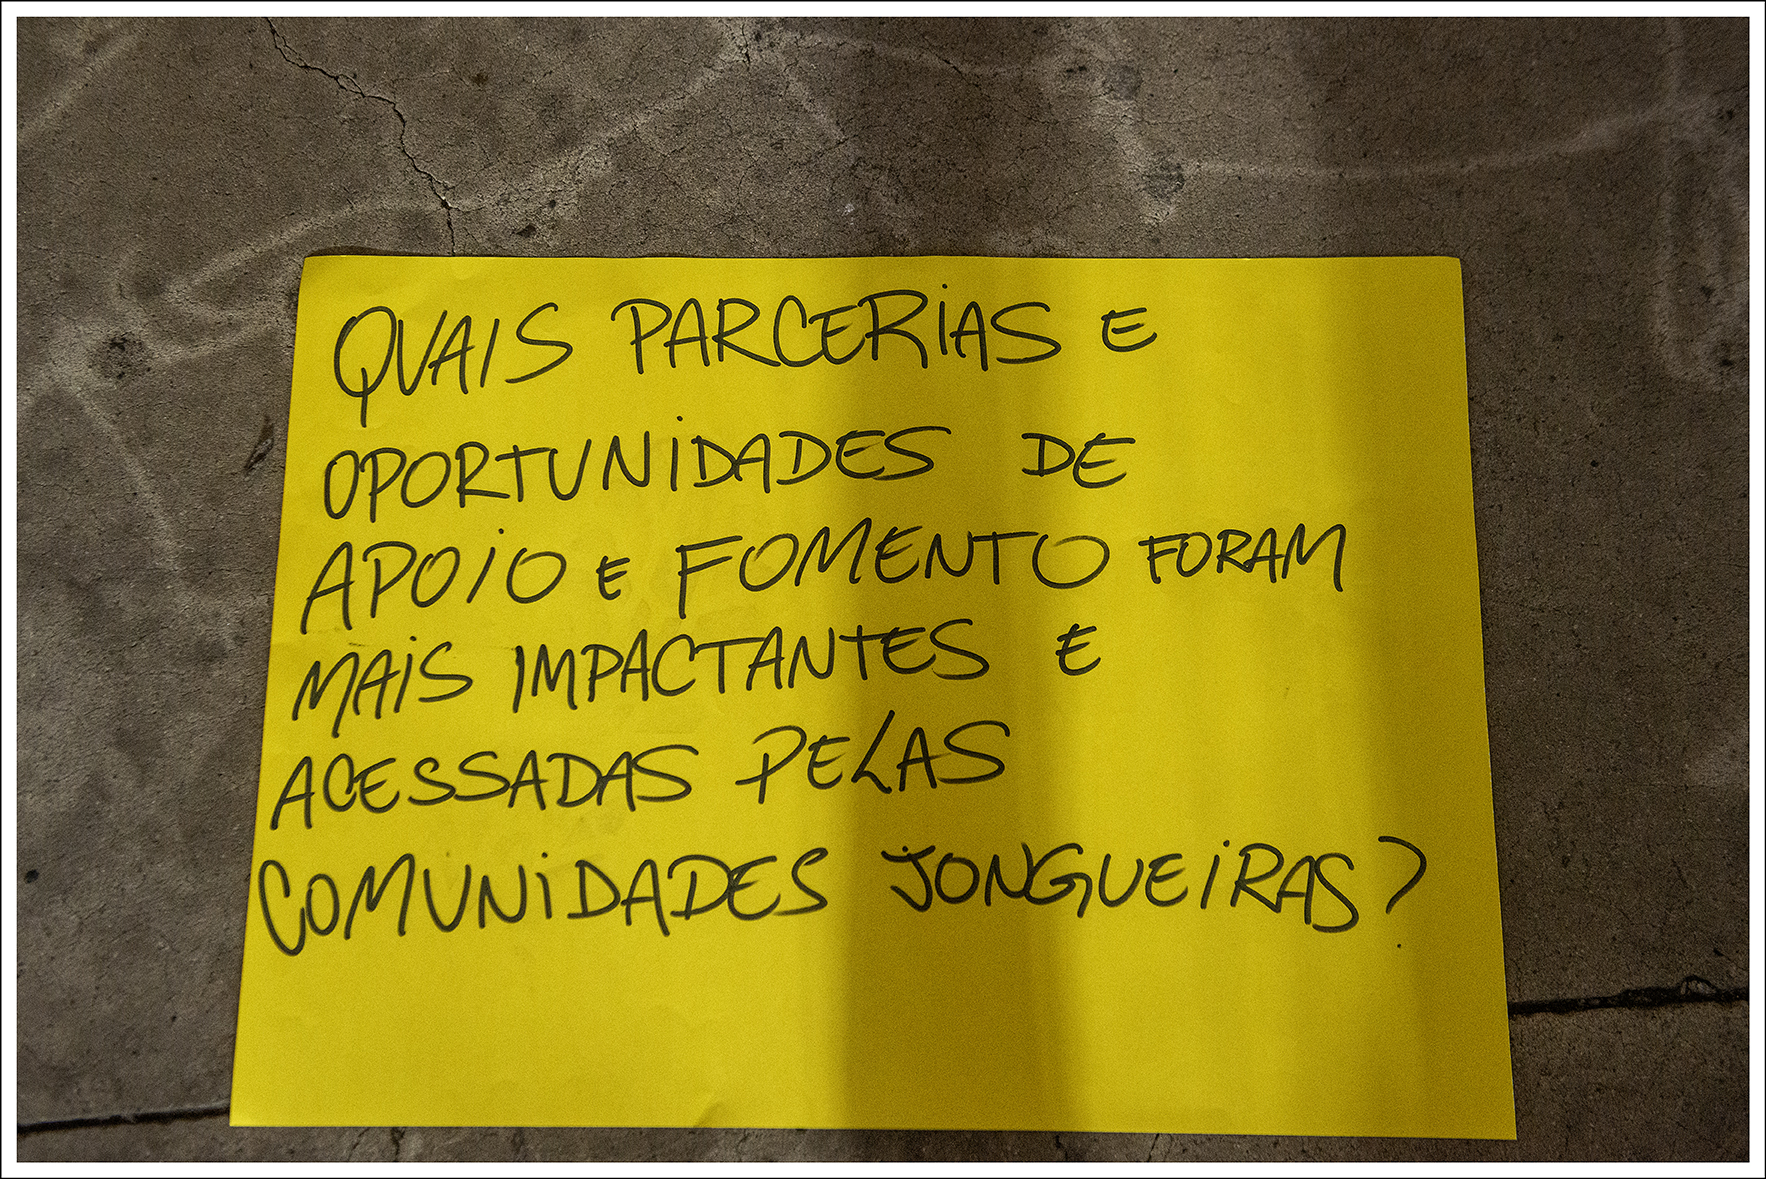 QUAIS PARCERIAS E
OPORTUNIDADES DE
APOIO E FOMENTO FORAM
MAIS IMPACTANTES E
ACESSADAS PELAS
COMUNIDADES JONGUEIRAS?